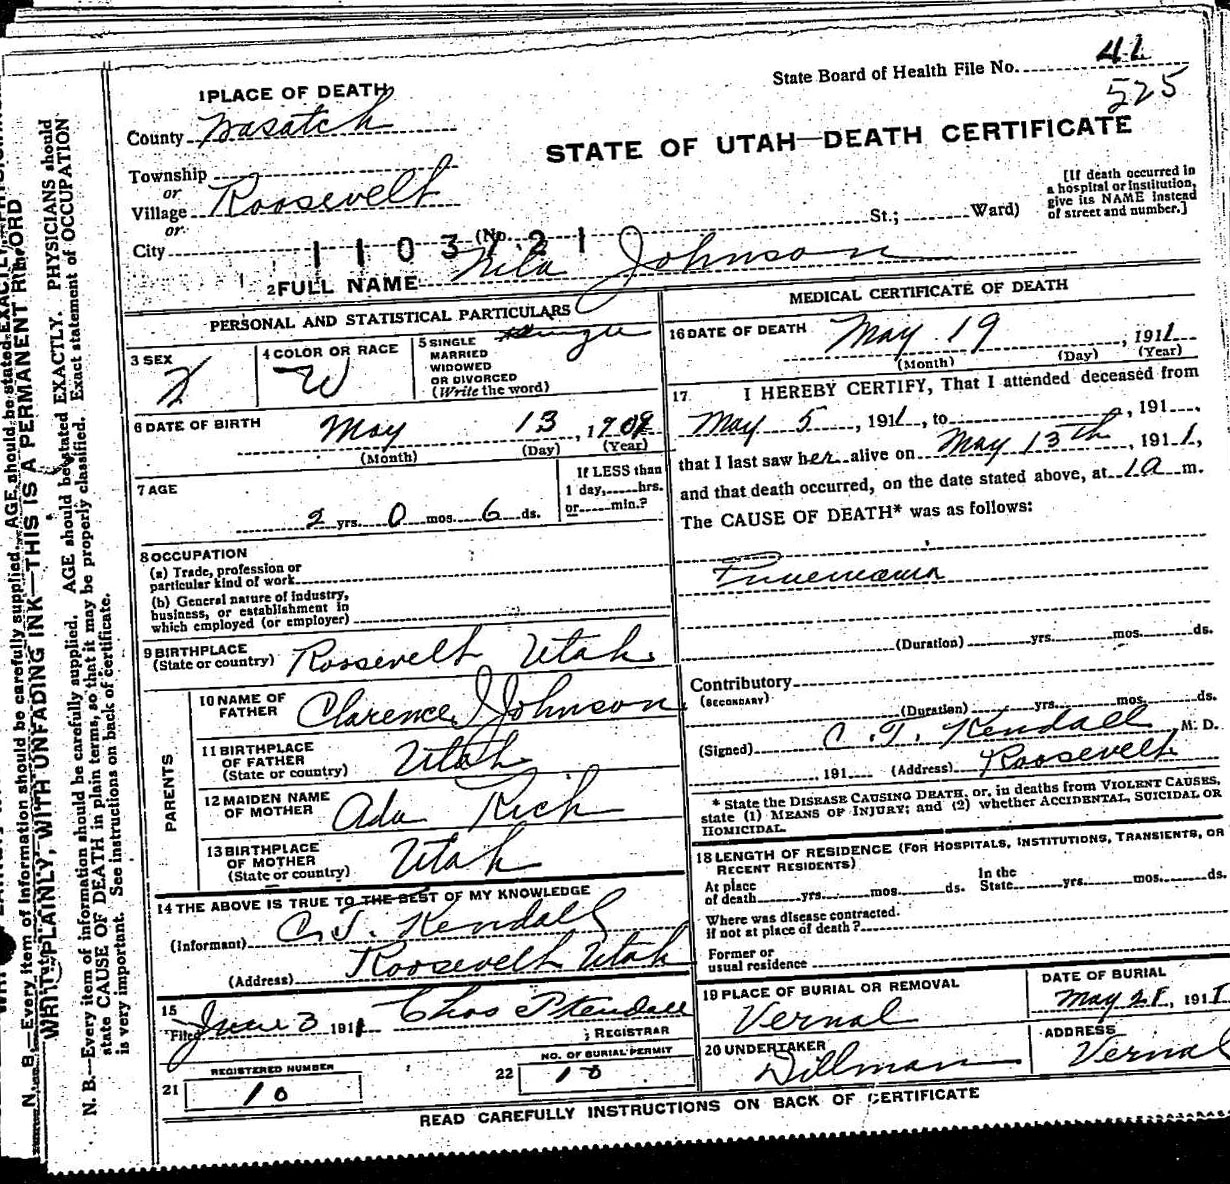 State Board of Health File No. 41
525
1 PLACE OF DEATH
County Wasatch
STATE OF UTAH—DEATH CERTIFICATE
Township
or
Village Roosevelt
or
City
[If death occurred in
a hospital or institution,
give its NAME instead
of street and number.]
(No. St.; Ward)
1103721
2 FULL NAME Nila Johnson
PERSONAL AND STATISTICAL PARTICULARS
3 SEX
4 COLOR OR RACE
W
5 SINGLE
MARRIED
WIDOWED
OR DIVORCED
(Write the word)
Single
6 DATE OF BIRTH May 13, 1909
(Month) (Day) (Year)
7 AGE
2 yrs. 0 mos. 6 ds.
If LESS than
1 day, hrs.
or min.?
8 OCCUPATION
(a) Trade, profession or
particular kind of work
(b) General nature of industry,
business, or establishment in
which employed (or employer)
9 BIRTHPLACE
(State or country) Roosevelt Utah
PARENTS
10 NAME OF
FATHER Clarence J Johnson
11 BIRTHPLACE
OF FATHER
(State or country) Utah
12 MAIDEN NAME
OF MOTHER Ada Rich
13 BIRTHPLACE
OF MOTHER
(State or country) Utah
14 THE ABOVE IS TRUE TO THE BEST OF MY KNOWLEDGE
(Informant) C. T. Kendall
(Address) Roosevelt Utah
15
Filed June 3 1911 Chas P Kendall
REGISTRAR
21 REGISTERED NUMBER
10
22 NO. OF BURIAL PERMIT
10
MEDICAL CERTIFICATE OF DEATH
16 DATE OF DEATH May 19, 1911
(Month) (Day) (Year)
17 I HEREBY CERTIFY, That I attended deceased from
May 5, 1911, to , 191 ,
that I last saw her alive on May 13th, 1911,
and that death occurred, on the date stated above, at 1 a m.
The CAUSE OF DEATH* was as follows:
Pnuemonia
(Duration) yrs. mos. ds.
Contributory
(SECONDARY)
(Duration) yrs. mos. ds.
(Signed) C. T. Kendall M. D.
191 (Address) Roosevelt
* State the DISEASE CAUSING DEATH, or, in deaths from VIOLENT CAUSES,
state (1) MEANS OF INJURY; and (2) whether ACCIDENTAL, SUICIDAL OR
HOMICIDAL.
18 LENGTH OF RESIDENCE (FOR HOSPITALS, INSTITUTIONS, TRANSIENTS, OR
RECENT RESIDENTS)
At place
of death yrs. mos. ds.
In the
State yrs. mos. ds.
Where was disease contracted.
if not at place of death?
Former or
usual residence
19 PLACE OF BURIAL OR REMOVAL
Vernal
DATE OF BURIAL
May 21, 1911
20 UNDERTAKER
Dillman
ADDRESS
Vernal
READ CAREFULLY INSTRUCTIONS ON BACK OF CERTIFICATE
WRITE PLAINLY, WITH UNFADING INK—THIS IS A PERMANENT RECORD
N. B.—Every item of information should be carefully supplied. AGE should be stated EXACTLY. PHYSICIANS should
state CAUSE OF DEATH in plain terms, so that it may be properly classified. Exact statement of OCCUPATION
is very important. See instructions on back of certificate.
N. B.—Every item of information should be carefully supplied. AGE should be stated EXACTLY.